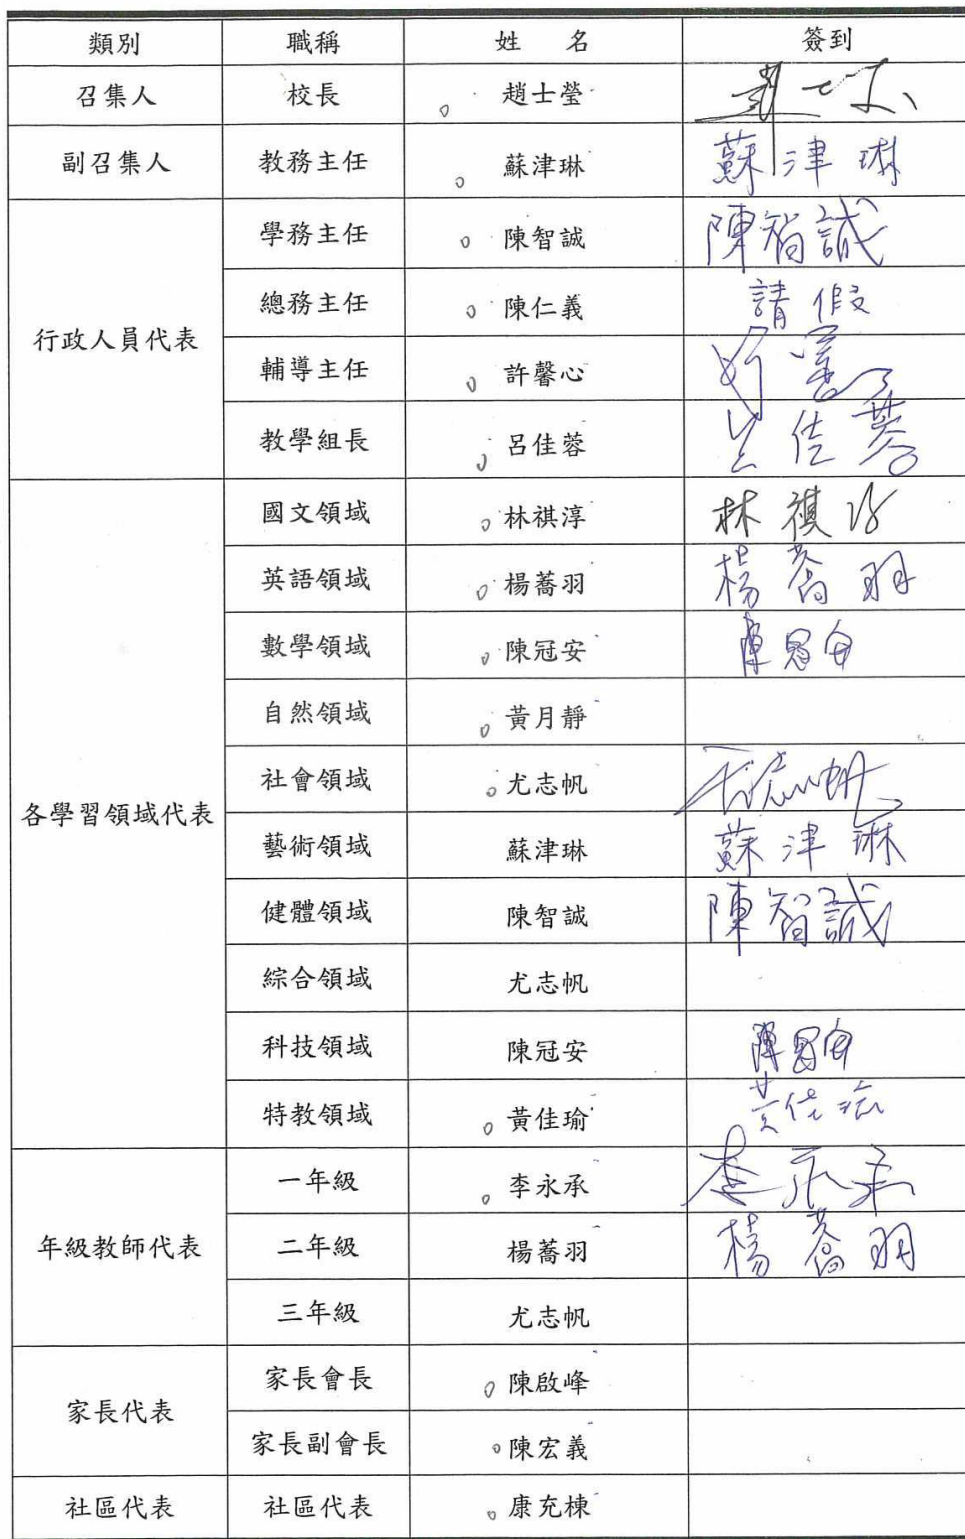 類別 職稱 姓 名 簽到
召集人 校長 趙士瑩
副召集人 教務主任 蘇津琳 蘇津琳
行政人員代表 學務主任 陳智誠 陳智誠
總務主任 陳仁義 請假
輔導主任 許馨心
教學組長 呂佳蓉 呂佳蓉
各學習領域代表 國文領域 林祺淳 林祺
英語領域 楊蕎羽 楊蕎羽
數學領域 陳冠安 陳冠安
自然領域 黃月靜
社會領域 尤志帆 尤志帆
藝術領域 蘇津琳 蘇津琳
健體領域 陳智誠 陳智誠
綜合領域 尤志帆
科技領域 陳冠安 陳冠安
特教領域 黃佳瑜 黃佳瑜
年級教師代表 一年級 李永承 李永承
二年級 楊蕎羽 楊蕎羽
三年級 尤志帆
家長代表 家長會長 陳啟峰
家長副會長 陳宏義
社區代表 社區代表 康充棟